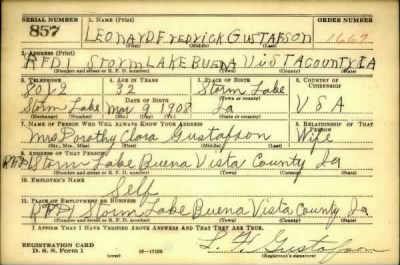 SERIAL NUMBER 1. NAME (Print) ORDER NUMBER
857 LEONARD FREDRICK GUSTAFSON 1669
(First) (Middle) (Last)
2. ADDRESS (Print)
RFD1 STORM LAKE BUENA VISTA COUNTY IA
(Number and street or R. F. D. number) (Town) (County) (State)
3. TELEPHONE 4. AGE IN YEARS 5. PLACE OF BIRTH 6. COUNTRY OF CITIZENSHIP
8012 32 Storm Lake
DATE OF BIRTH (Town or county)
Storm Lake Mar 9 1908 Ia USA
(Exchange) (Number) (Mo.) (Day) (Yr.) (State or country)
7. NAME OF PERSON WHO WILL ALWAYS KNOW YOUR ADDRESS 8. RELATIONSHIP OF THAT PERSON
Mrs Dorothy Clara Gustafson Wife
(Mr., Mrs., Miss) (First) (Middle) (Last)
9. ADDRESS OF THAT PERSON
RFD1 Storm Lake Buena Vista County Ia
(Number and street or R. F. D. number) (Town) (County) (State)
10. EMPLOYER'S NAME
Self
11. PLACE OF EMPLOYMENT OR BUSINESS
RFD1 Storm Lake Buena Vista County Ia
(Number and street or R. F. D. number) (Town) (County) (State)
I AFFIRM THAT I HAVE VERIFIED ABOVE ANSWERS AND THAT THEY ARE TRUE.
REGISTRATION CARD
D. S. S. Form 1 L. F. Gustafson
(Registrant's signature)